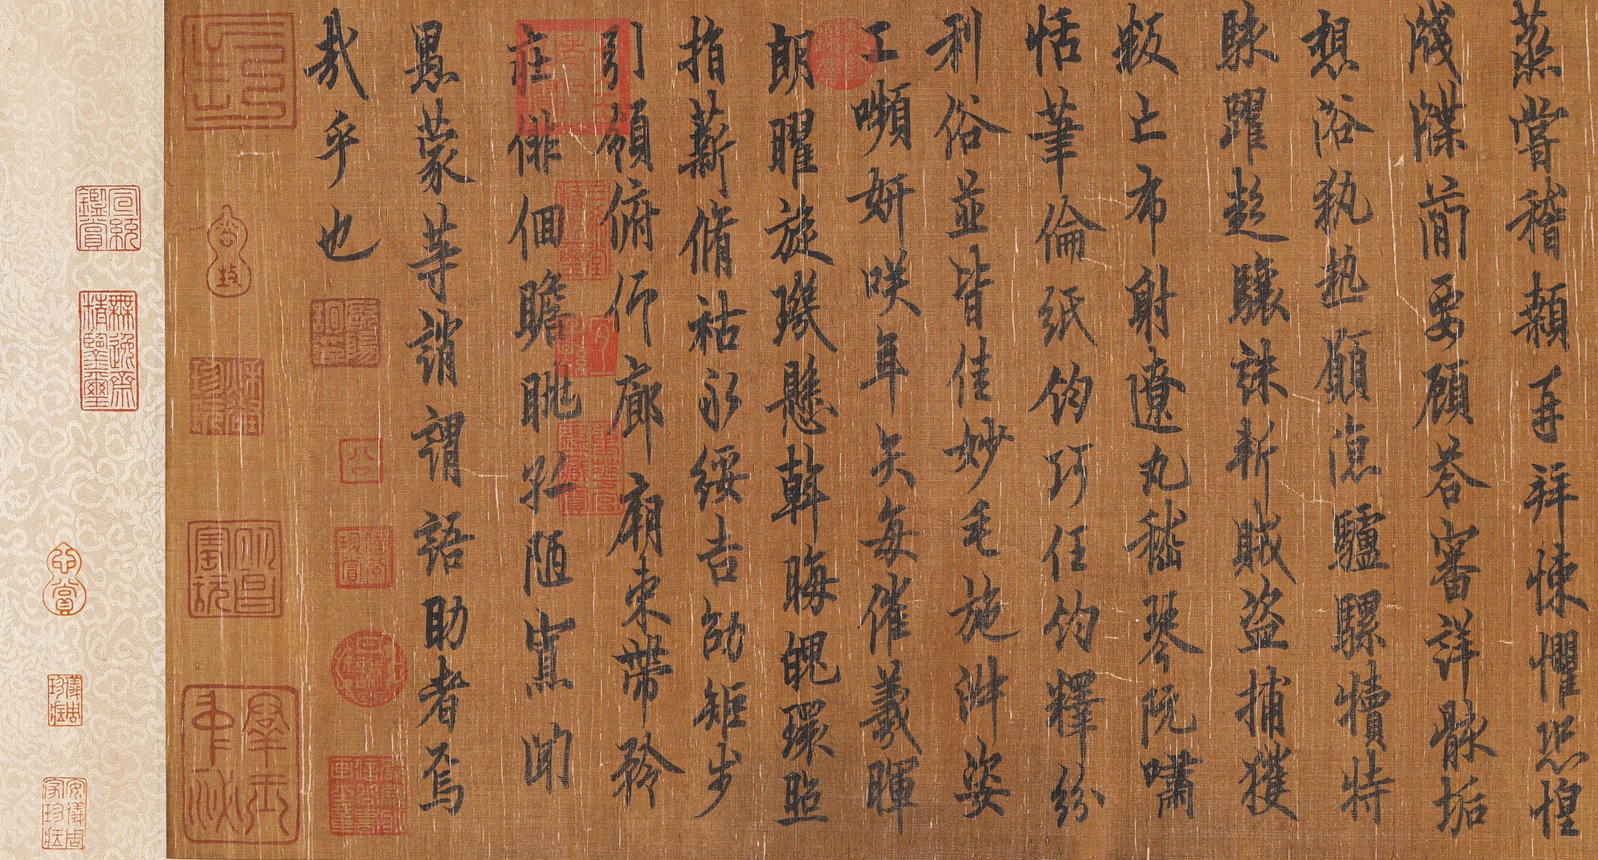 蒸嘗稽顙再拜悚懼恐惶
牋牒蕳要顧荅審詳骸垢
想浴執熱願涼驢騾犢特
駭躍超驤誅斬賊盜捕獲
叛亡布射遼丸嵇琴阮嘯
恬筆倫紙鈞巧任釣釋紛
利俗並皆佳妙毛施淑姿
工嚬妍咲年矢每催羲暉
朗曜旋璣懸斡晦魄環照
指薪脩祜永綏吉劭矩步
引領俯仰廊廟束帶矜
莊俳佪瞻眺孤陋寡聞
愚蒙等誚謂語助者焉
哉乎也
宣統鑑賞
無逸齋精鑒璽